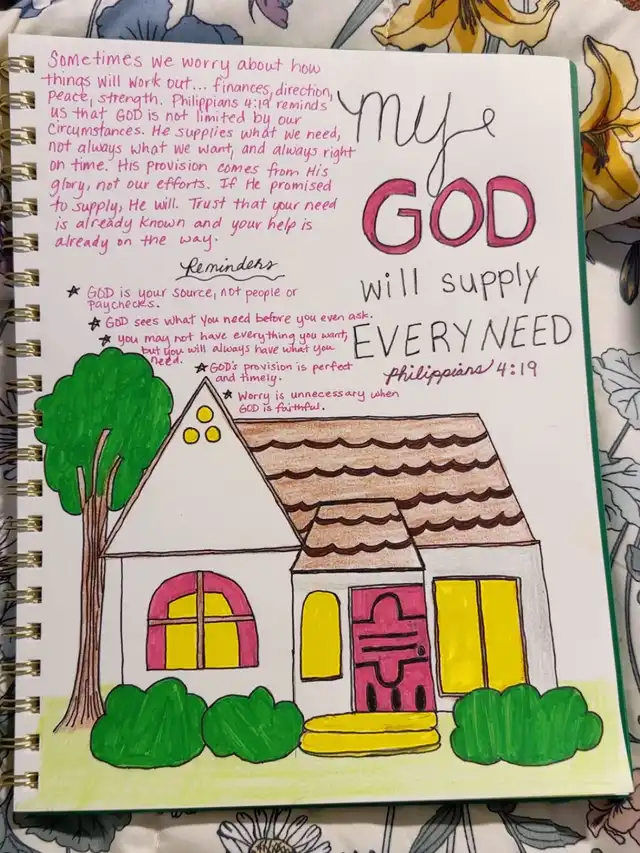 Sometimes we worry about how
things will work out... finances, direction,
peace, strength. Philippians 4:19 reminds
us that GOD is not limited by our
circumstances. He supplies what we need,
not always what we want, and always right
on time. His provision comes from His
glory, not our efforts. If He promised
to supply, He will. Trust that your need
is already known and your help is
already on the way.
Reminders
★ GOD is your source, not people or
paychecks.
★ GOD sees what you need before you even ask.
★ you may not have everything you want,
but you will always have what you
need.
★ GOD's provision is perfect
and timely.
★ Worry is unnecessary when
GOD is faithful.
My
GOD
will supply
EVERY NEED
Philippians 4:19